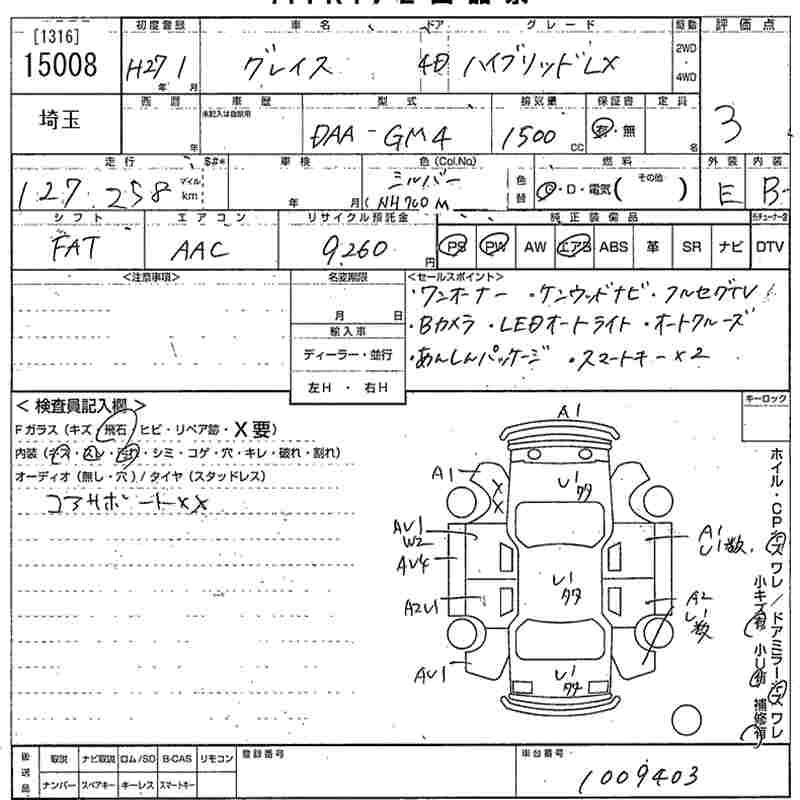 [1316]
15008
初度登録
H27 1
年 月
車名
グレイス
ドア
4D
グレード
ハイブリッドLX
駆動
2WD
4WD
評価点
3
埼玉
西暦
年
車歴
未記入は自家用
型式
DAA-GM4
排気量
1500 CC
保証書
有・無
定員
名
走行
127,258
マイル
km
S#*
車検
年 月
色(Col.No)
シルバー
NH700M
色替
燃料
G・D・電気( その他 )
外装
E
内装
B-
シフト
FAT
エアコン
AAC
リサイクル預託金
9,260 円
純正装備品
PS PW AW エアB ABS 革 SR ナビ DTV
<注意事項>
名変期限
月 日
輸入車
ディーラー・並行
左H・右H
<セールスポイント>
・ワンオーナー ・ケンウッドナビ・フルセグTV
・Bカメラ ・LEDオートライト ・オートクルーズ
・あんしんパッケージ ・スマートキー×2
<検査員記入欄>
Fガラス(キズ・飛石・ヒビ・リペア跡・X要)
内装(キズ・スレ・汚れ・シミ・コゲ・穴・キレ・破れ・割れ)
オーディオ(無し・穴)/タイヤ(スタッドレス)
コアサポートXX
キーロック
A1
A1
X
X
U1
タタ
AU1
W2
AU4
A2U1
AU1
U1
タタ
U1
タタ
A1
U1数
A2
U1
数
ホイル・CPキズ ワレ/ドアミラーキズ ワレ
小キズ有 小U有 補修有
後送品
取説 ナビ取説 ロム/SD B-CAS リモコン
ナンバー スペアキー キーレス スマートキー
登録番号
車台番号
1009403